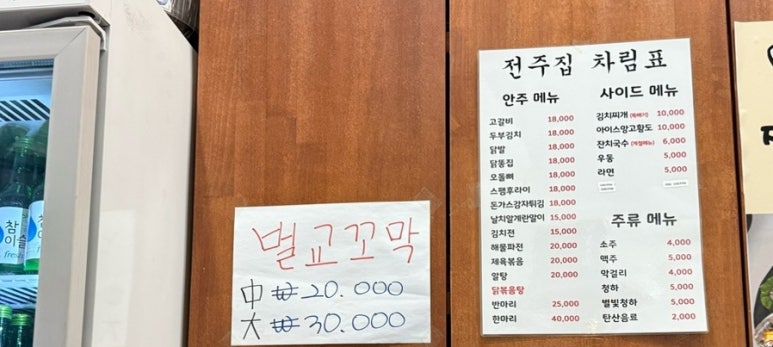 참
이슬
fresh
벌교꼬막
中 ₩20.000
大 ₩30.000
전주집 차림표
안주 메뉴
고갈비 18,000
두부김치 18,000
닭발 18,000
닭똥집 18,000
오돌뼈 18,000
스팸후라이 18,000
돈가스감자튀김 18,000
날치알계란말이 15,000
김치전 15,000
해물파전 20,000
제육볶음 20,000
알탕 20,000
닭볶음탕
반마리 25,000
한마리 40,000
사이드 메뉴
김치찌개 (뚝배기) 10,000
아이스망고황도 10,000
잔치국수 (계절메뉴) 6,000
우동 5,000
라면 5,000
주류 메뉴
소주 4,000
맥주 5,000
막걸리 4,000
청하 5,000
별빛청하 5,000
탄산음료 2,000